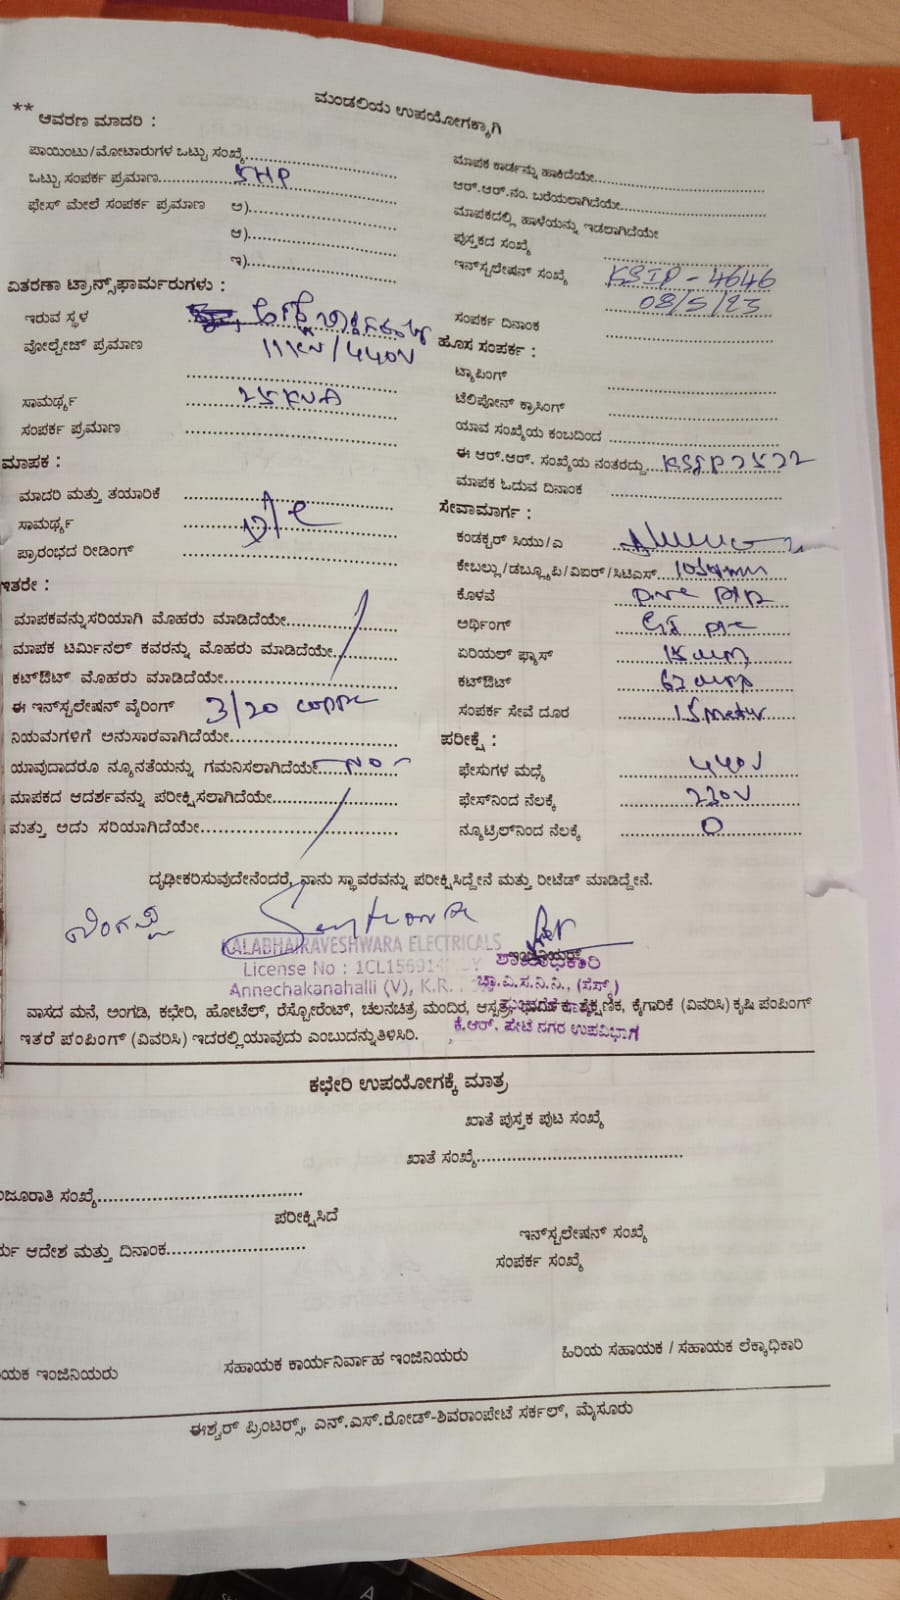 ಮಂಡಲಿಯ ಉಪಯೋಗಕ್ಕಾಗಿ
** ಆವರಣ ಮಾದರಿ :
ಪಾಯಿಂಟು/ಮೋಟಾರುಗಳ ಒಟ್ಟು ಸಂಖ್ಯೆ
ಒಟ್ಟು ಸಂಪರ್ಕ ಪ್ರಮಾಣ 5HP
ಫೇಸ್ ಮೇಲೆ ಸಂಪರ್ಕ ಪ್ರಮಾಣ ಅ)
ಆ)
ಇ)
ವಿತರಣಾ ಟ್ರಾನ್ಸ್‌ಫಾರ್ಮರುಗಳು :
ಇರುವ ಸ್ಥಳ
ವೋಲ್ಟೇಜ್ ಪ್ರಮಾಣ 11KV/440V
ಸಾಮರ್ಥ್ಯ 25KVA
ಸಂಪರ್ಕ ಪ್ರಮಾಣ
ಮಾಪಕ :
ಮಾದರಿ ಮತ್ತು ತಯಾರಿಕೆ
ಸಾಮರ್ಥ್ಯ
ಪ್ರಾರಂಭದ ರೀಡಿಂಗ್
ಇತರೇ :
ಮಾಪಕವನ್ನು ಸರಿಯಾಗಿ ಮೊಹರು ಮಾಡಿದೆಯೇ
ಮಾಪಕ ಟರ್ಮಿನಲ್ ಕವರನ್ನು ಮೊಹರು ಮಾಡಿದೆಯೇ
ಕಟ್‌ಔಟ್ ಮೊಹರು ಮಾಡಿದೆಯೇ
ಈ ಇನ್‌ಸ್ಟಲೇಷನ್ ವೈರಿಂಗ್ 3/20
ನಿಯಮಗಳಿಗೆ ಅನುಸಾರವಾಗಿದೆಯೇ
ಯಾವುದಾದರೂ ನ್ಯೂನತೆಯನ್ನು ಗಮನಿಸಲಾಗಿದೆಯೇ NO
ಮಾಪಕದ ಆದರ್ಶವನ್ನು ಪರೀಕ್ಷಿಸಲಾಗಿದೆಯೇ
ಮತ್ತು ಅದು ಸರಿಯಾಗಿದೆಯೇ
ಮಾಪಕ ಕಾರ್ಡನ್ನು ಹಾಕಿದೆಯೇ
ಆರ್.ಆರ್.ನಂ. ಬರೆಯಲಾಗಿದೆಯೇ
ಮಾಪಕದಲ್ಲಿ ಹಾಳೆಯನ್ನು ಇಡಲಾಗಿದೆಯೇ
ಪುಸ್ತಕದ ಸಂಖ್ಯೆ
ಇನ್‌ಸ್ಟಲೇಷನ್ ಸಂಖ್ಯೆ KSIP - 4646
08/5/23
ಸಂಪರ್ಕ ದಿನಾಂಕ
ಹೊಸ ಸಂಪರ್ಕ :
ಟ್ಯಾಪಿಂಗ್
ಟೆಲಿಫೋನ್ ಕ್ರಾಸಿಂಗ್
ಯಾವ ಸಂಖ್ಯೆಯ ಕಂಬದಿಂದ
ಈ ಆರ್.ಆರ್. ಸಂಖ್ಯೆಯ ನಂತರದ್ದು KSIP2522
ಮಾಪಕ ಓದುವ ದಿನಾಂಕ
ಸೇವಾಮಾರ್ಗ :
ಕಂಡಕ್ಟರ್ ಸಿಯು/ಎ
ಕೇಬಲ್ಲು/ಡಬ್ಲ್ಯೂಪಿ/ವಿಐಆರ್/ಸಿಟಿಎಸ್
ಕೊಳವೆ
ಅರ್ಥಿಂಗ್
ಏರಿಯಲ್ ಫ್ಯೂಸ್ 15 amp
ಕಟ್‌ಔಟ್ 63 amp
ಸಂಪರ್ಕ ಸೇವೆ ದೂರ 15 Meter
ಪರೀಕ್ಷೆ :
ಫೇಸುಗಳ ಮಧ್ಯೆ 440V
ಫೇಸ್‌ನಿಂದ ನೆಲಕ್ಕೆ 230V
ನ್ಯೂಟ್ರಲ್‌ನಿಂದ ನೆಲಕ್ಕೆ 0
ದೃಢೀಕರಿಸುವುದೇನೆಂದರೆ, ನಾನು ಸ್ಥಾವರವನ್ನು ಪರೀಕ್ಷಿಸಿದ್ದೇನೆ ಮತ್ತು ರೀಟೆಡ್ ಮಾಡಿದ್ದೇನೆ.
KALABHAIRAVESHWARA ELECTRICALS
License No : 1CL156914
Annechakanahalli (V), K.R.
ಶಾಖಾಧಿಕಾರಿ
ಚಾ.ವಿ.ಸ.ನಿ.ನಿ., (ಸೆಸ್ಕ್)
ಕೆ.ಆರ್. ಪೇಟೆ ನಗರ ಉಪವಿಭಾಗ
ವಾಸದ ಮನೆ, ಅಂಗಡಿ, ಕಛೇರಿ, ಹೋಟೆಲ್, ರೆಸ್ಟೋರೆಂಟ್, ಚಲನಚಿತ್ರ ಮಂದಿರ, ಆಸ್ಪತ್ರೆ, ಕೈಗಾರಿಕೆ (ವಿವರಿಸಿ) ಕೃಷಿ ಪಂಪಿಂಗ್
ಇತರೆ ಪಂಪಿಂಗ್ (ವಿವರಿಸಿ) ಇದರಲ್ಲಿ ಯಾವುದು ಎಂಬುದನ್ನು ತಿಳಿಸಿರಿ.
ಕಛೇರಿ ಉಪಯೋಗಕ್ಕೆ ಮಾತ್ರ
ಖಾತೆ ಪುಸ್ತಕ ಪುಟ ಸಂಖ್ಯೆ
ಖಾತೆ ಸಂಖ್ಯೆ
ಜೂರಾತಿ ಸಂಖ್ಯೆ
ಪರೀಕ್ಷಿಸಿದೆ
ಆದೇಶ ಮತ್ತು ದಿನಾಂಕ
ಇನ್‌ಸ್ಟಲೇಷನ್ ಸಂಖ್ಯೆ
ಸಂಪರ್ಕ ಸಂಖ್ಯೆ
ಯಕ ಇಂಜಿನಿಯರು ಸಹಾಯಕ ಕಾರ್ಯನಿರ್ವಾಹ ಇಂಜಿನಿಯರು ಹಿರಿಯ ಸಹಾಯಕ / ಸಹಾಯಕ ಲೆಕ್ಕಾಧಿಕಾರಿ
ಈಶ್ವರ್ ಪ್ರಿಂಟರ್ಸ್, ಎನ್.ಎಸ್.ರೋಡ್-ಶಿವರಾಂಪೇಟೆ ಸರ್ಕಲ್, ಮೈಸೂರು